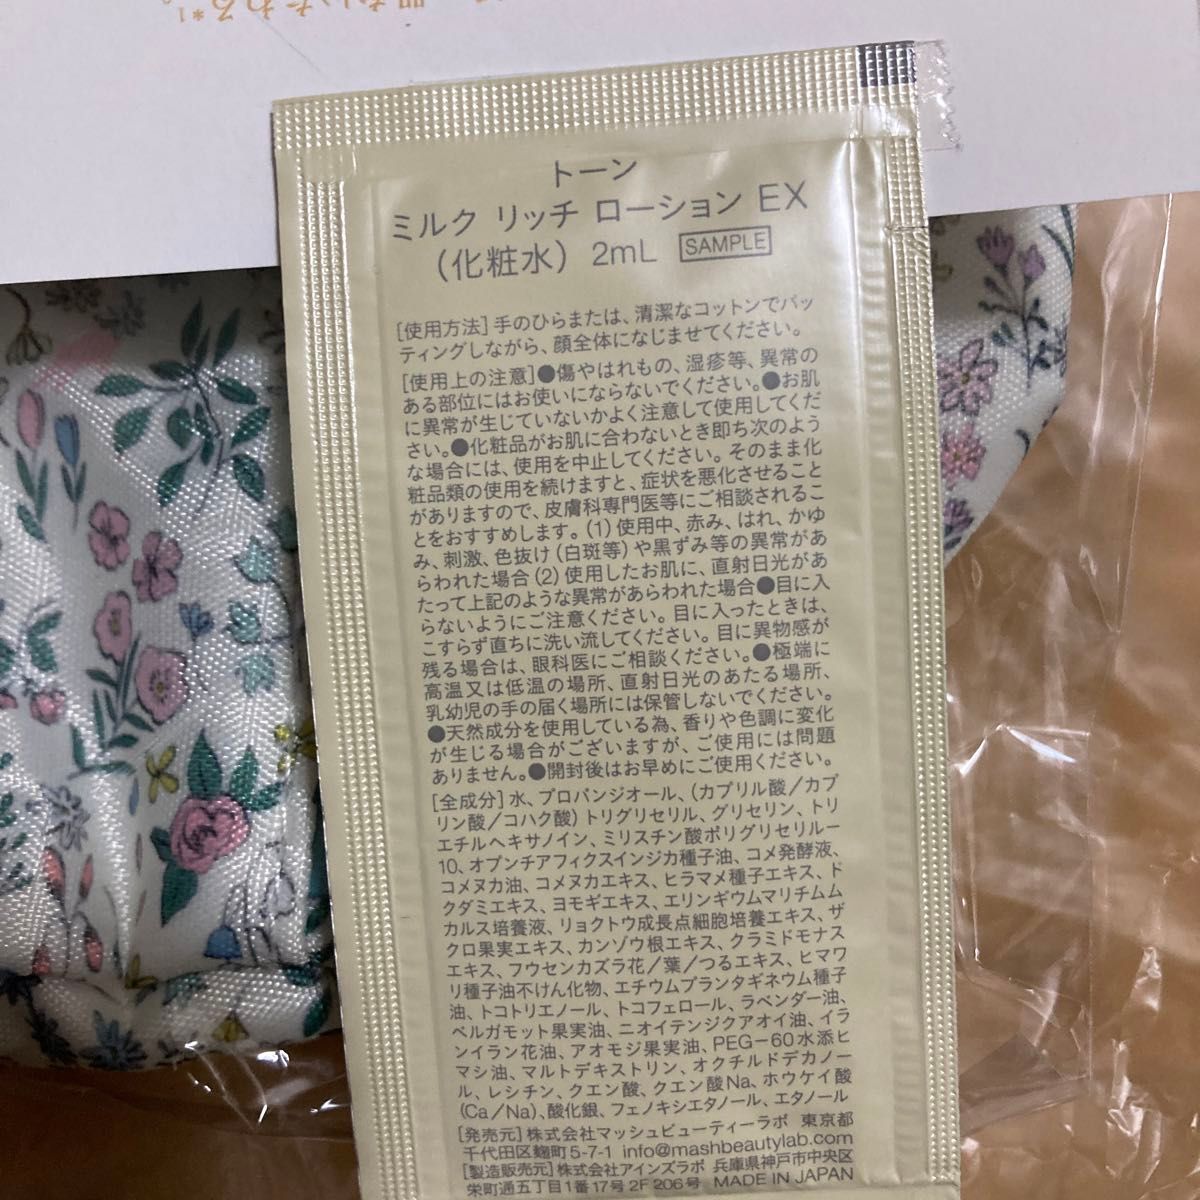 トーン
ミルク リッチ ローション EX
（化粧水） 2mL SAMPLE
［使用方法］手のひらまたは、清潔なコットンでパッ
ティングしながら、顔全体になじませてください。
［使用上の注意］●傷やはれもの、湿疹等、異常の
ある部位にはお使いにならないでください。●お肌
に異常が生じていないかよく注意して使用してくだ
さい。●化粧品がお肌に合わないとき即ち次のよう
な場合には、使用を中止してください。そのまま化
粧品類の使用を続けますと、症状を悪化させること
がありますので、皮膚科専門医等にご相談されるこ
とをおすすめします。(1)使用中、赤み、はれ、かゆ
み、刺激、色抜け(白斑等)や黒ずみ等の異常があ
らわれた場合(2)使用したお肌に、直射日光があ
たって上記のような異常があらわれた場合●目に入
らないようにご注意ください。目に入ったときは、
こすらず直ちに洗い流してください。目に異物感が
残る場合は、眼科医にご相談ください。●極端に
高温又は低温の場所、直射日光のあたる場所、
乳幼児の手の届く場所には保管しないでください。
●天然成分を使用している為、香りや色調に変化
が生じる場合がございますが、ご使用には問題
ありません。●開封後はお早めにご使用ください。
［全成分］水、プロパンジオール、(カプリル酸／カプ
リン酸／コハク酸)トリグリセリル、グリセリン、トリ
エチルヘキサノイン、ミリスチン酸ポリグリセリル－
10、オプンチアフィクスインジカ種子油、コメ発酵液、
コメヌカ油、コメヌカエキス、ヒラマメ種子エキス、ド
クダミエキス、ヨモギエキス、エリンギウムマリチムム
カルス培養液、リョクトウ成長点細胞培養エキス、ザ
クロ果実エキス、カンゾウ根エキス、クラミドモナス
エキス、フウセンカズラ花／葉／つるエキス、ヒマワ
リ種子油不けん化物、エチウムプランタギネウム種子
油、トコトリエノール、トコフェロール、ラベンダー油、
ベルガモット果実油、ニオイテンジクアオイ油、イラ
ンイラン花油、アオモジ果実油、PEG－60水添ヒ
マシ油、マルトデキストリン、オクチルドデカノー
ル、レシチン、クエン酸、クエン酸Na、ホウケイ酸
(Ca／Na)、酸化銀、フェノキシエタノール、エタノール
［発売元］株式会社マッシュビューティーラボ 東京都
千代田区麹町5-7-1 info@mashbeautylab.com
［製造販売元］株式会社アインズラボ 兵庫県神戸市中央区
栄町通五丁目1番17号 2F 206号 MADE IN JAPAN